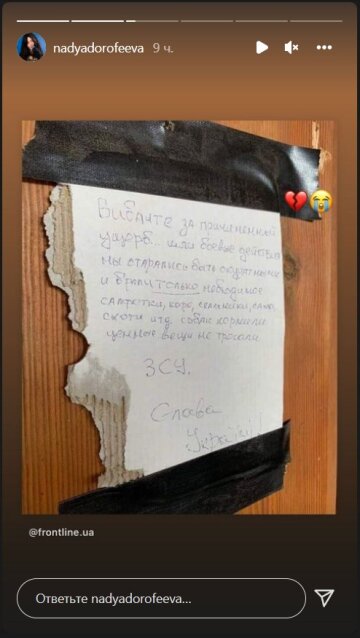 nadyadorofeeva 9 ч.
Вибачте за причиненный
ущерб... шли боевые действия
мы старались быть аккуратными
и брали только необходимое
салфетки, кофе, сельники,
скотч итд. собак кормили
ценные вещи не трогали
ЗСУ.
Слава
Україні!
@frontline.ua
Ответьте nadyadorofeeva...